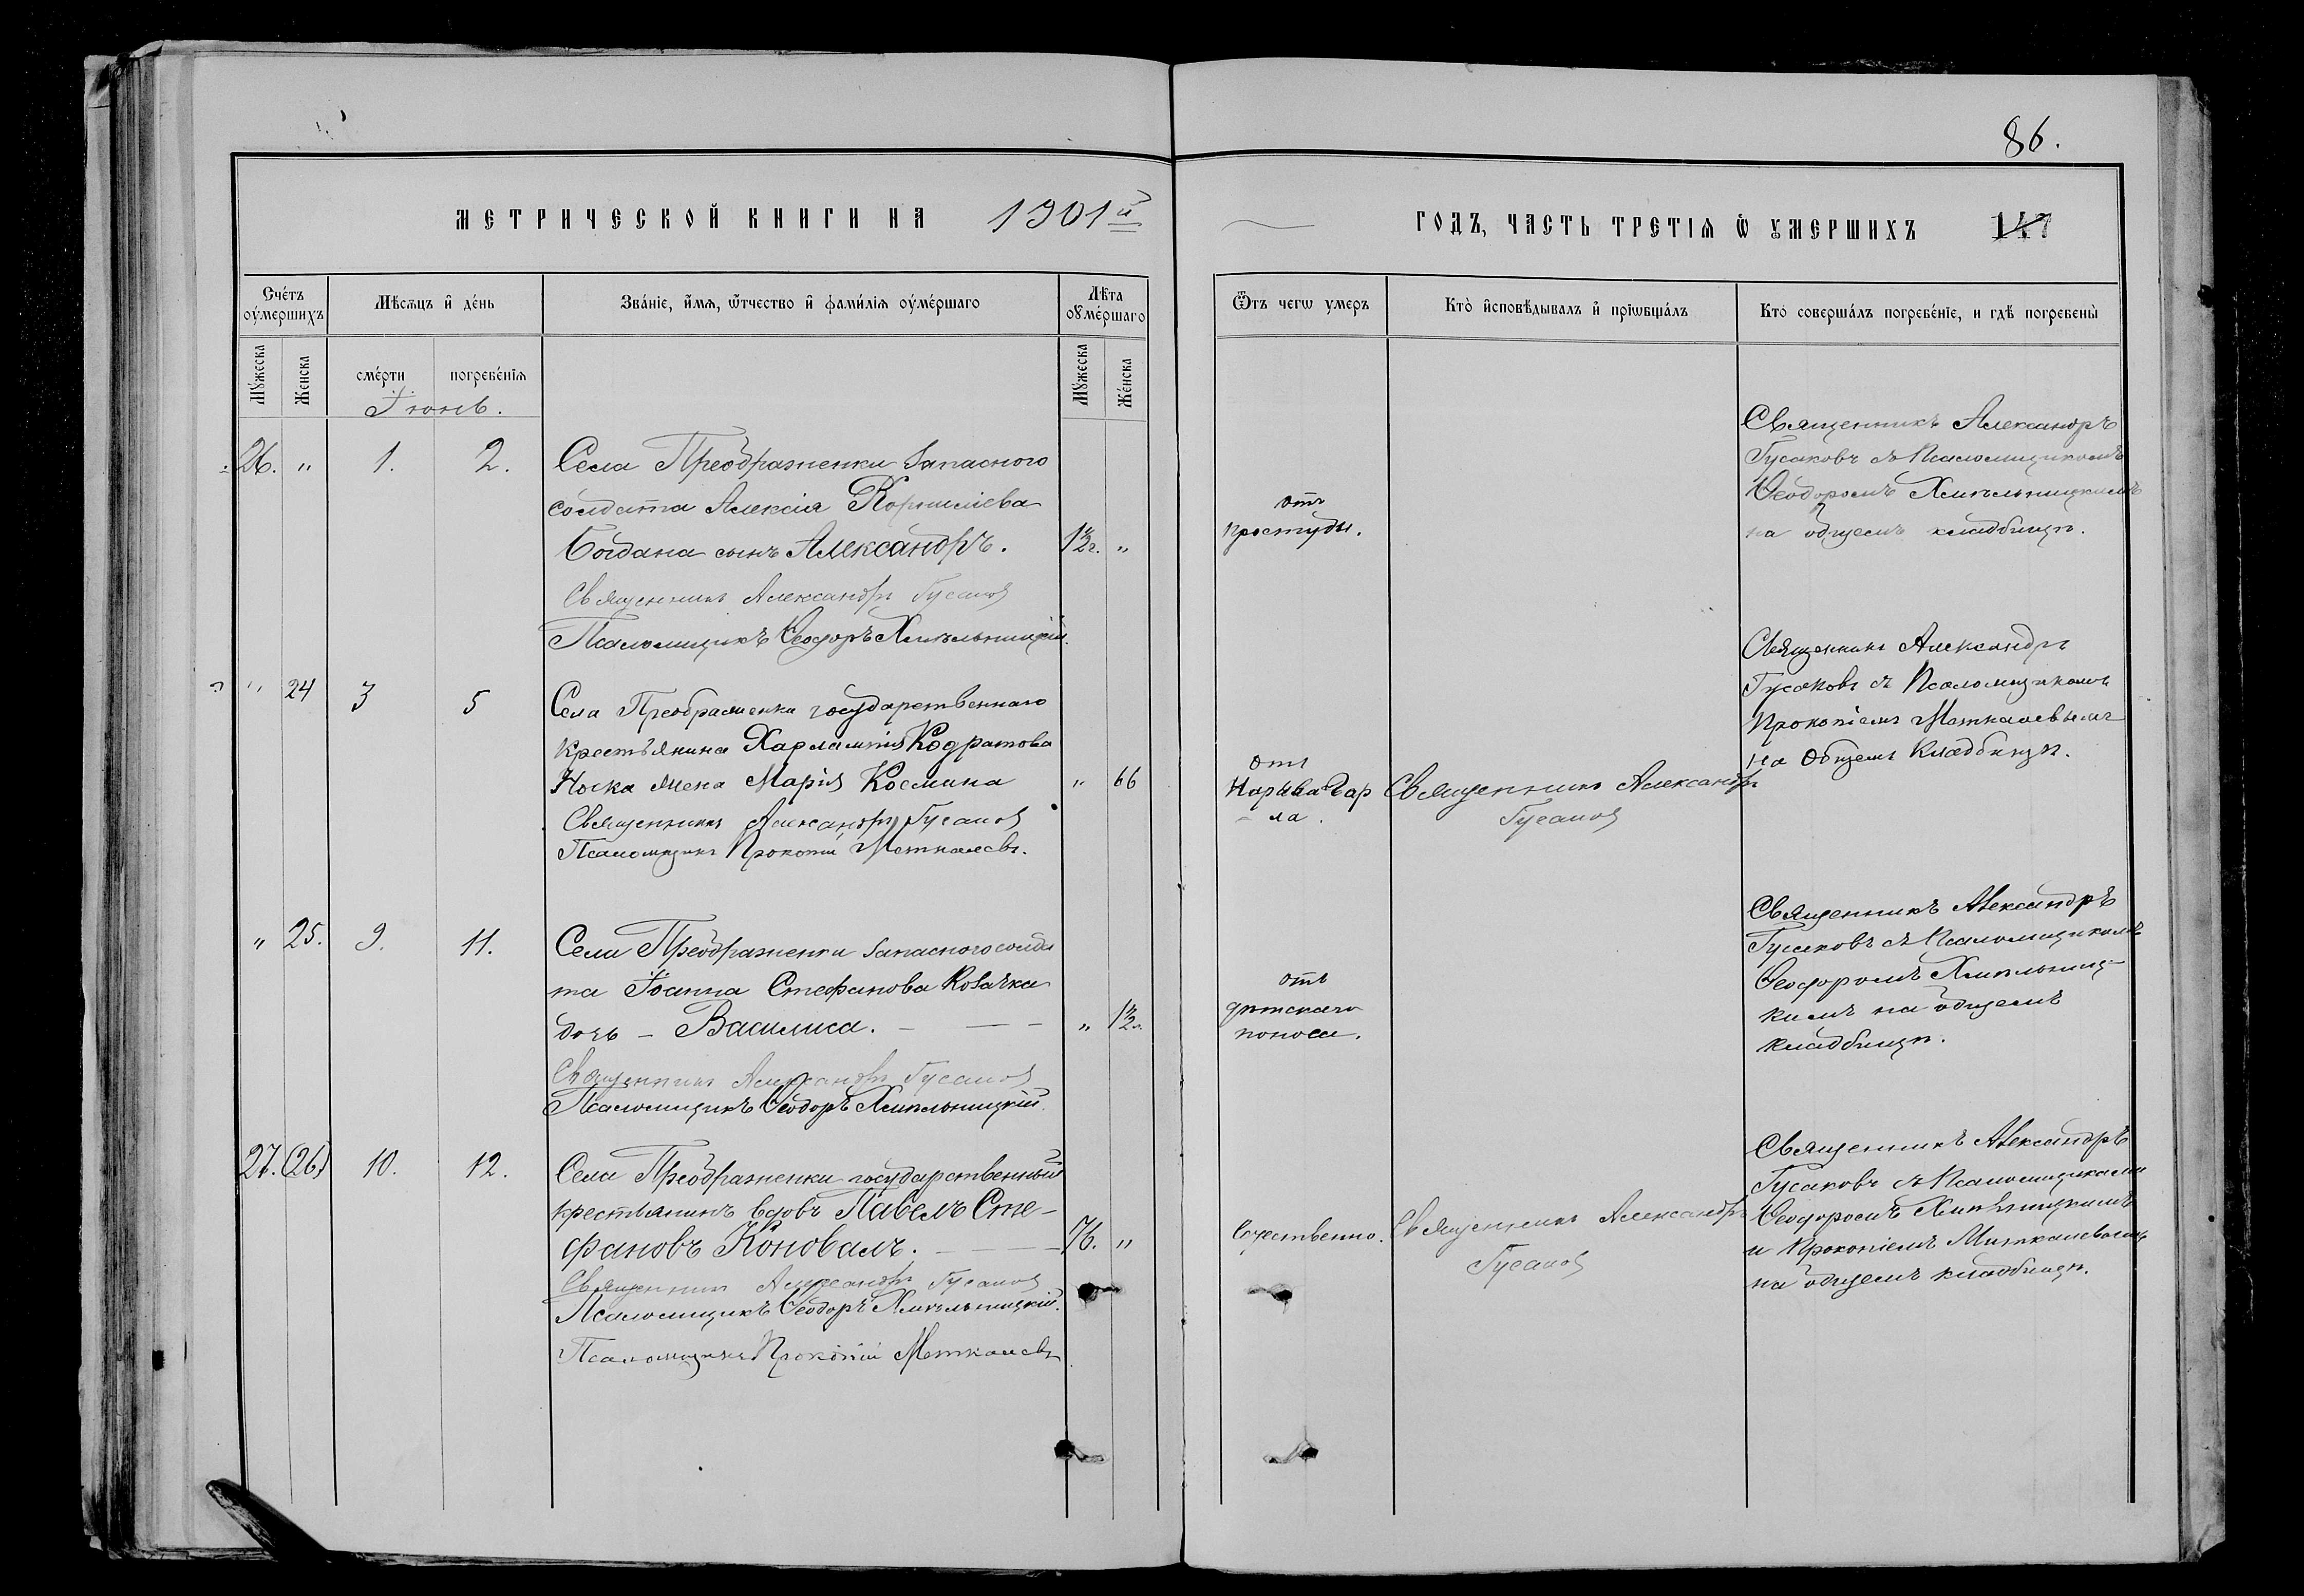 86.
МЕТРИЧЕСКОЙ КНИГИ НА 1901й
ГОДЪ, ЧАСТЬ ТРЕТІѦ Ѿ УМЕРШИХЪ 147
Сче́тъ оу́мершихъ
Мѣсѧцъ и҆ де́нь
Зва́нїе, и҆́мѧ, ѿтчество и҆ фами́лїѧ оу҆ме́ршагѡ
Лѣта оу҆ме́ршаго
Мꙋжеска
Же́нска
сме́рти
погребе́нїѧ
Мꙋжеска
Же́нска
Ѿтъ чегѡ умеръ
Кто̀ и҆сповѣ́дывалъ и҆ прїѡбща́лъ
Кто соверша́лъ погребе́нїе, и гдѣ погребены̀
Іюнь.
26. " 1. 2. Села Преображенки запасного
солдата Алексія Корнилієва
Богдана сынъ Александръ. 1½г. "
Священникъ Александръ Гусаковъ
Псаломщикъ Ѳеодоръ Хмѣльницкій.
отъ
простуды.
Священникъ Александръ
Гусаковъ съ Псаломщикомъ
Ѳеодоромъ Хмѣльницкимъ
на общемъ кладбищѣ.
" 24 3 5 Села Преображенки государственнаго
крестьянина Харлампія Кодратова
Носка жена Марія Космина " 66
Священникъ Александръ Гусаковъ
Псаломщикъ Прокопій Меткалевъ.
отъ
Нарыва Гор
ла.
Священникъ Александръ
Гусаковъ
Священникъ Александръ
Гусаковъ съ Псаломщикомъ
Прокопіемъ Меткалевымъ
на Общемъ Кладбищѣ.
" 25. 9. 11. Села Преображенки запасного солда
та Іоанна Стефанова Козачка
дочь – Василиса. – — – " 1½г.
Священникъ Александръ Гусаковъ
Псаломщикъ Ѳеодоръ Хмѣльницкій.
отъ
дѣтскаго
поноса.
Священникъ Александръ
Гусаковъ съ Псаломщикомъ
Ѳеодоромъ Хмѣльниц-
кимъ на общемъ
кладбищѣ.
27. (26) 10. 12. Села Преображенки государственный
крестьянинъ вдовъ Павелъ Сте-
фановъ Коновалъ. – — 76. "
Священникъ Александръ Гусаковъ
Псаломщикъ Ѳеодоръ Хмѣльницкій.
Псаломщикъ Прокопій Меткалевъ
Естественно.
Священникъ Александръ
Гусаковъ
Священникъ Александръ
Гусаковъ съ Псаломщиками
Ѳеодоромъ Хмѣльницкимъ
и Прокопіемъ Миткалевымъ
на общемъ кладбищѣ.